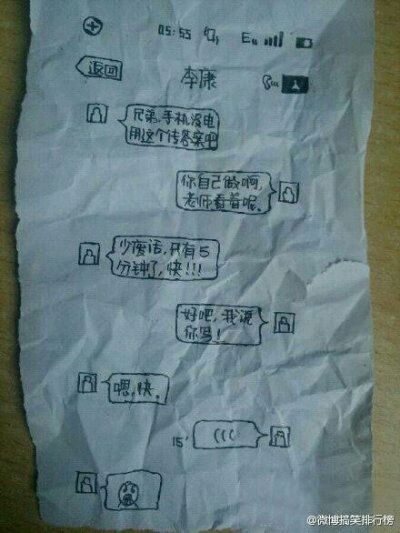 05:55 E
返回
李康
兄弟,手机没电
用这个传答案吧
你自己做啊,
老师看着呢。
少废话,只有5
分钟了,快!!!
好吧,我说
你写!
嗯,快.
15'
(((
@微博搞笑排行榜